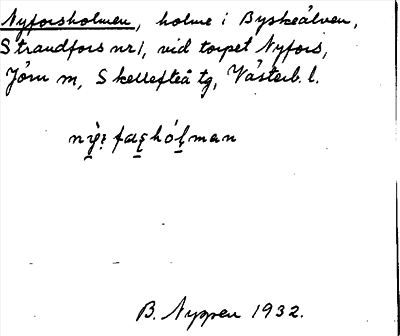 Nyforsholmen, holme i Byskeälven,
Strandfors nr 1, vid torpet Nyfors,
Jörn sn, Skellefteå tg, Västerb. l.
B. Nyppen 1932.